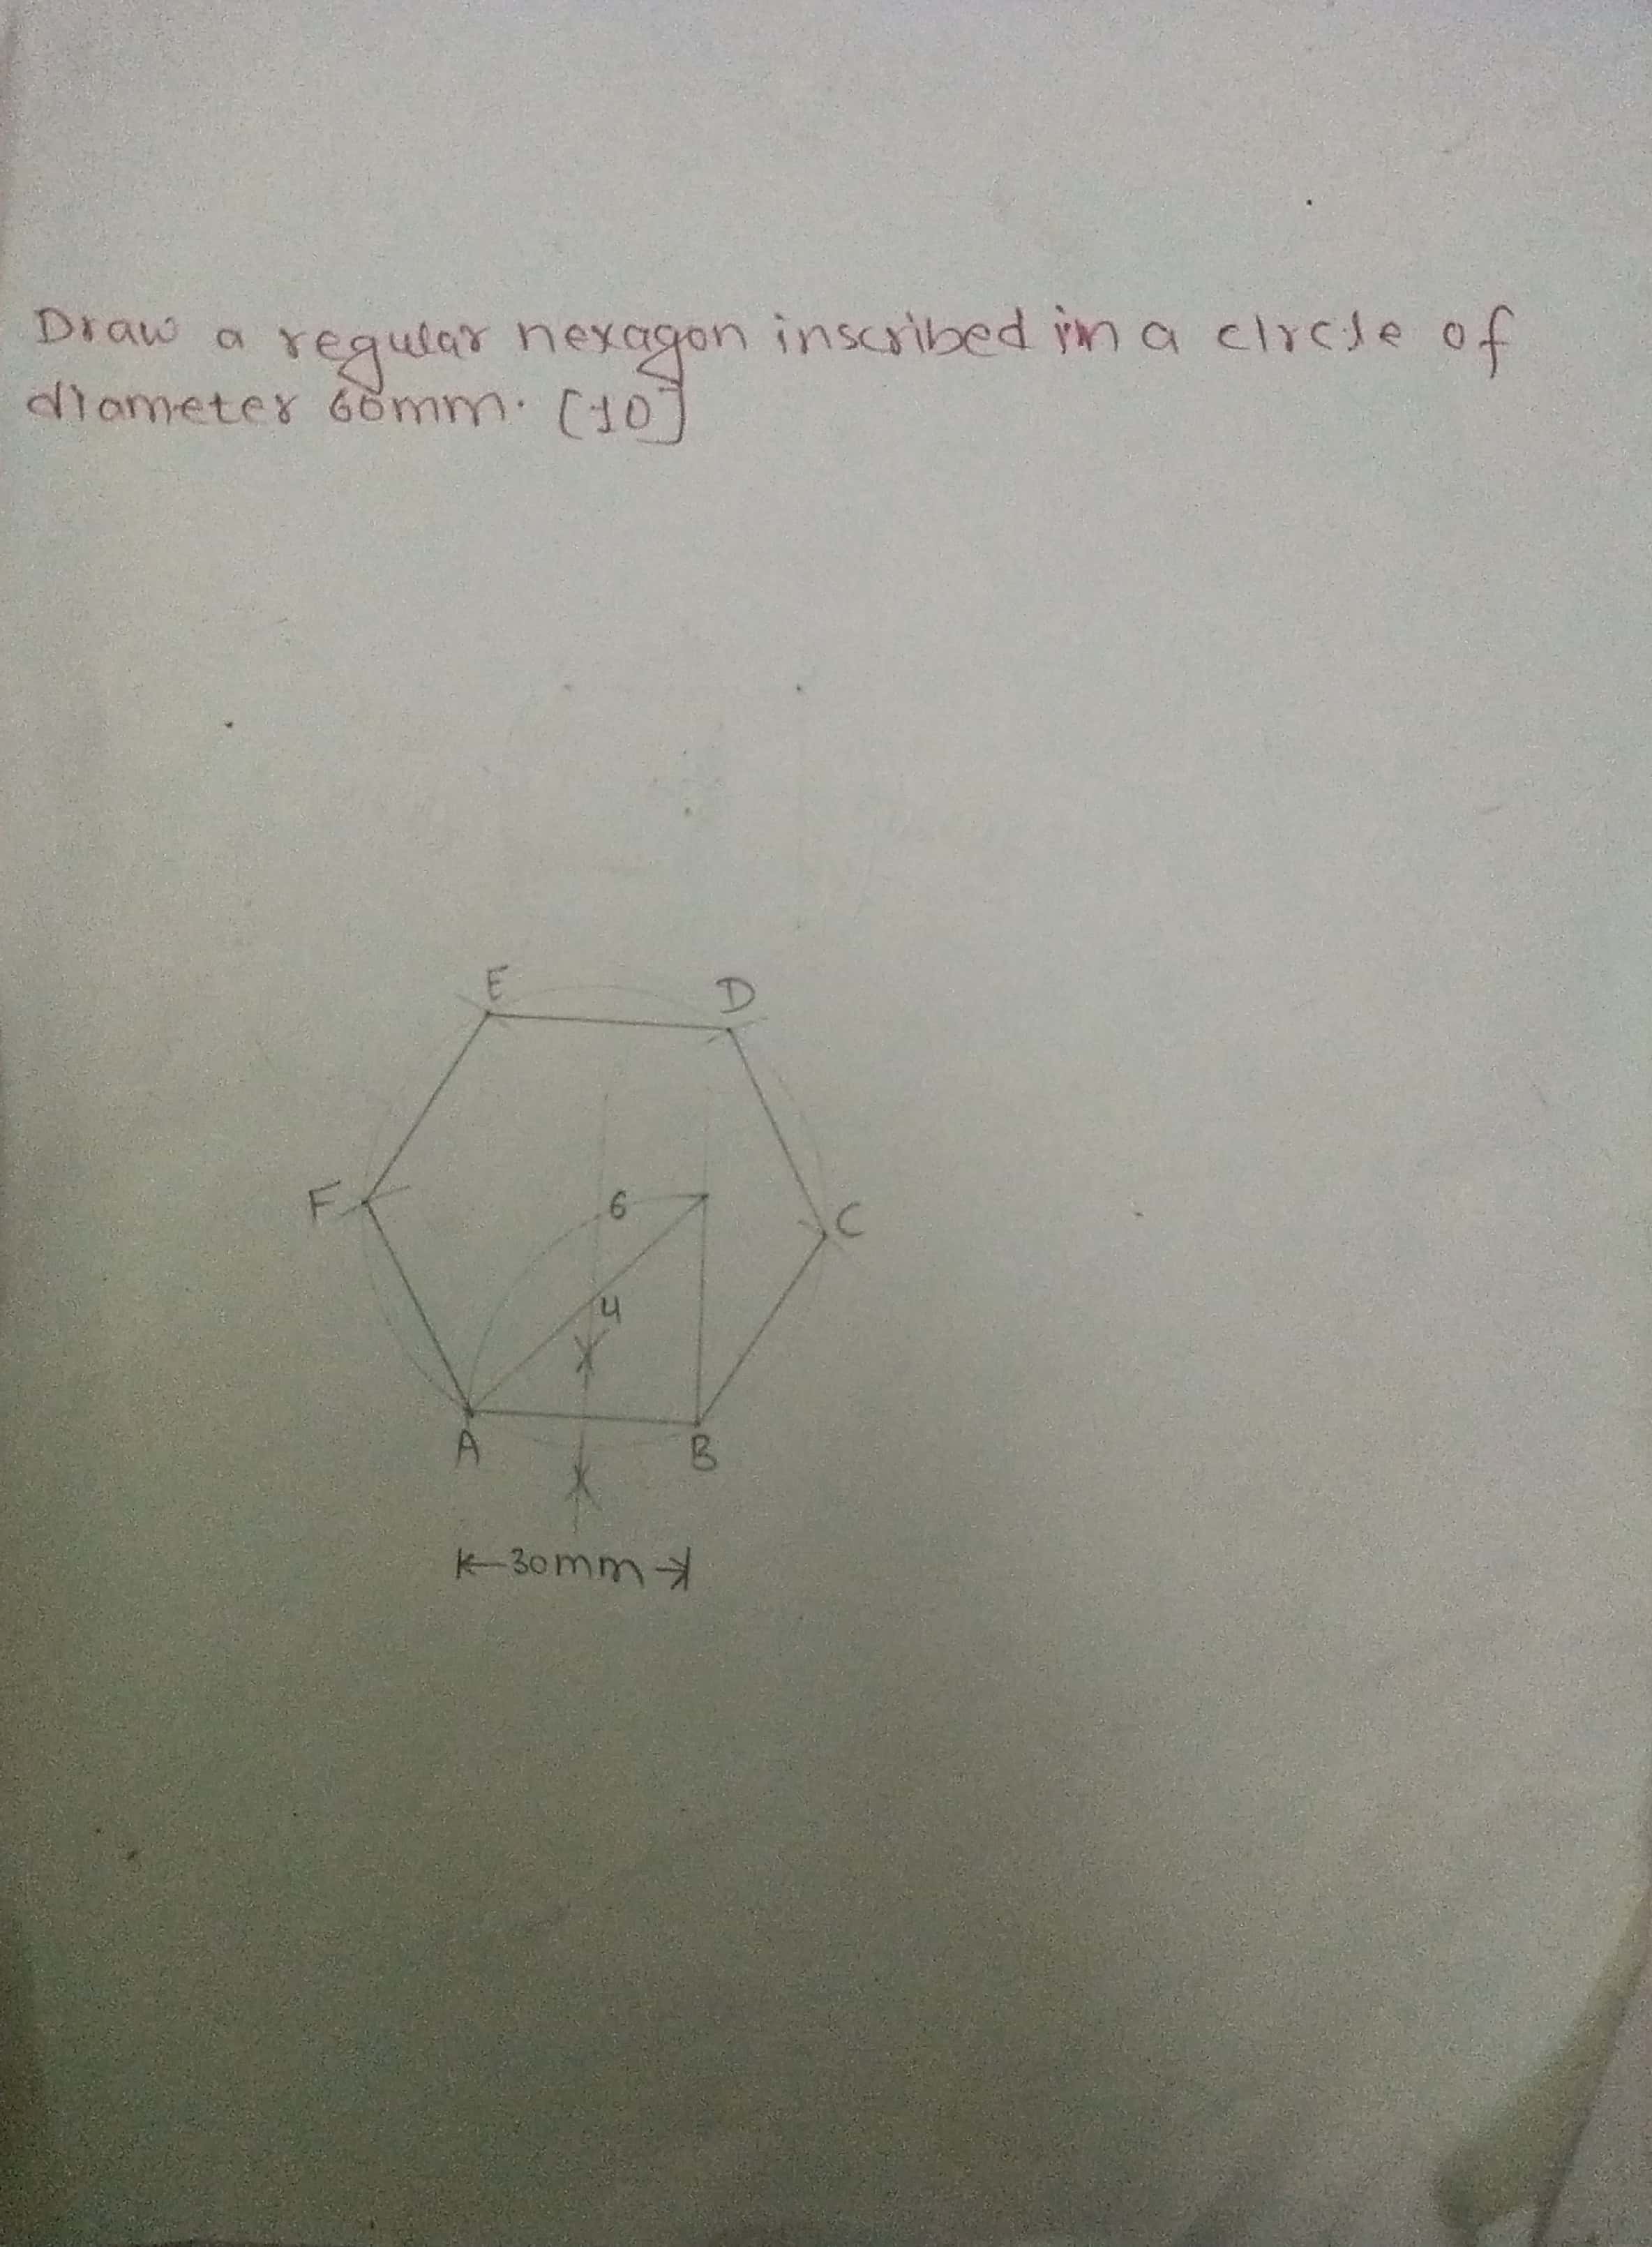 Draw a regular hexagon inscribed in a circle of
diameter 60mm. [10]
E
D
F
6
C
4
A
B
30mm